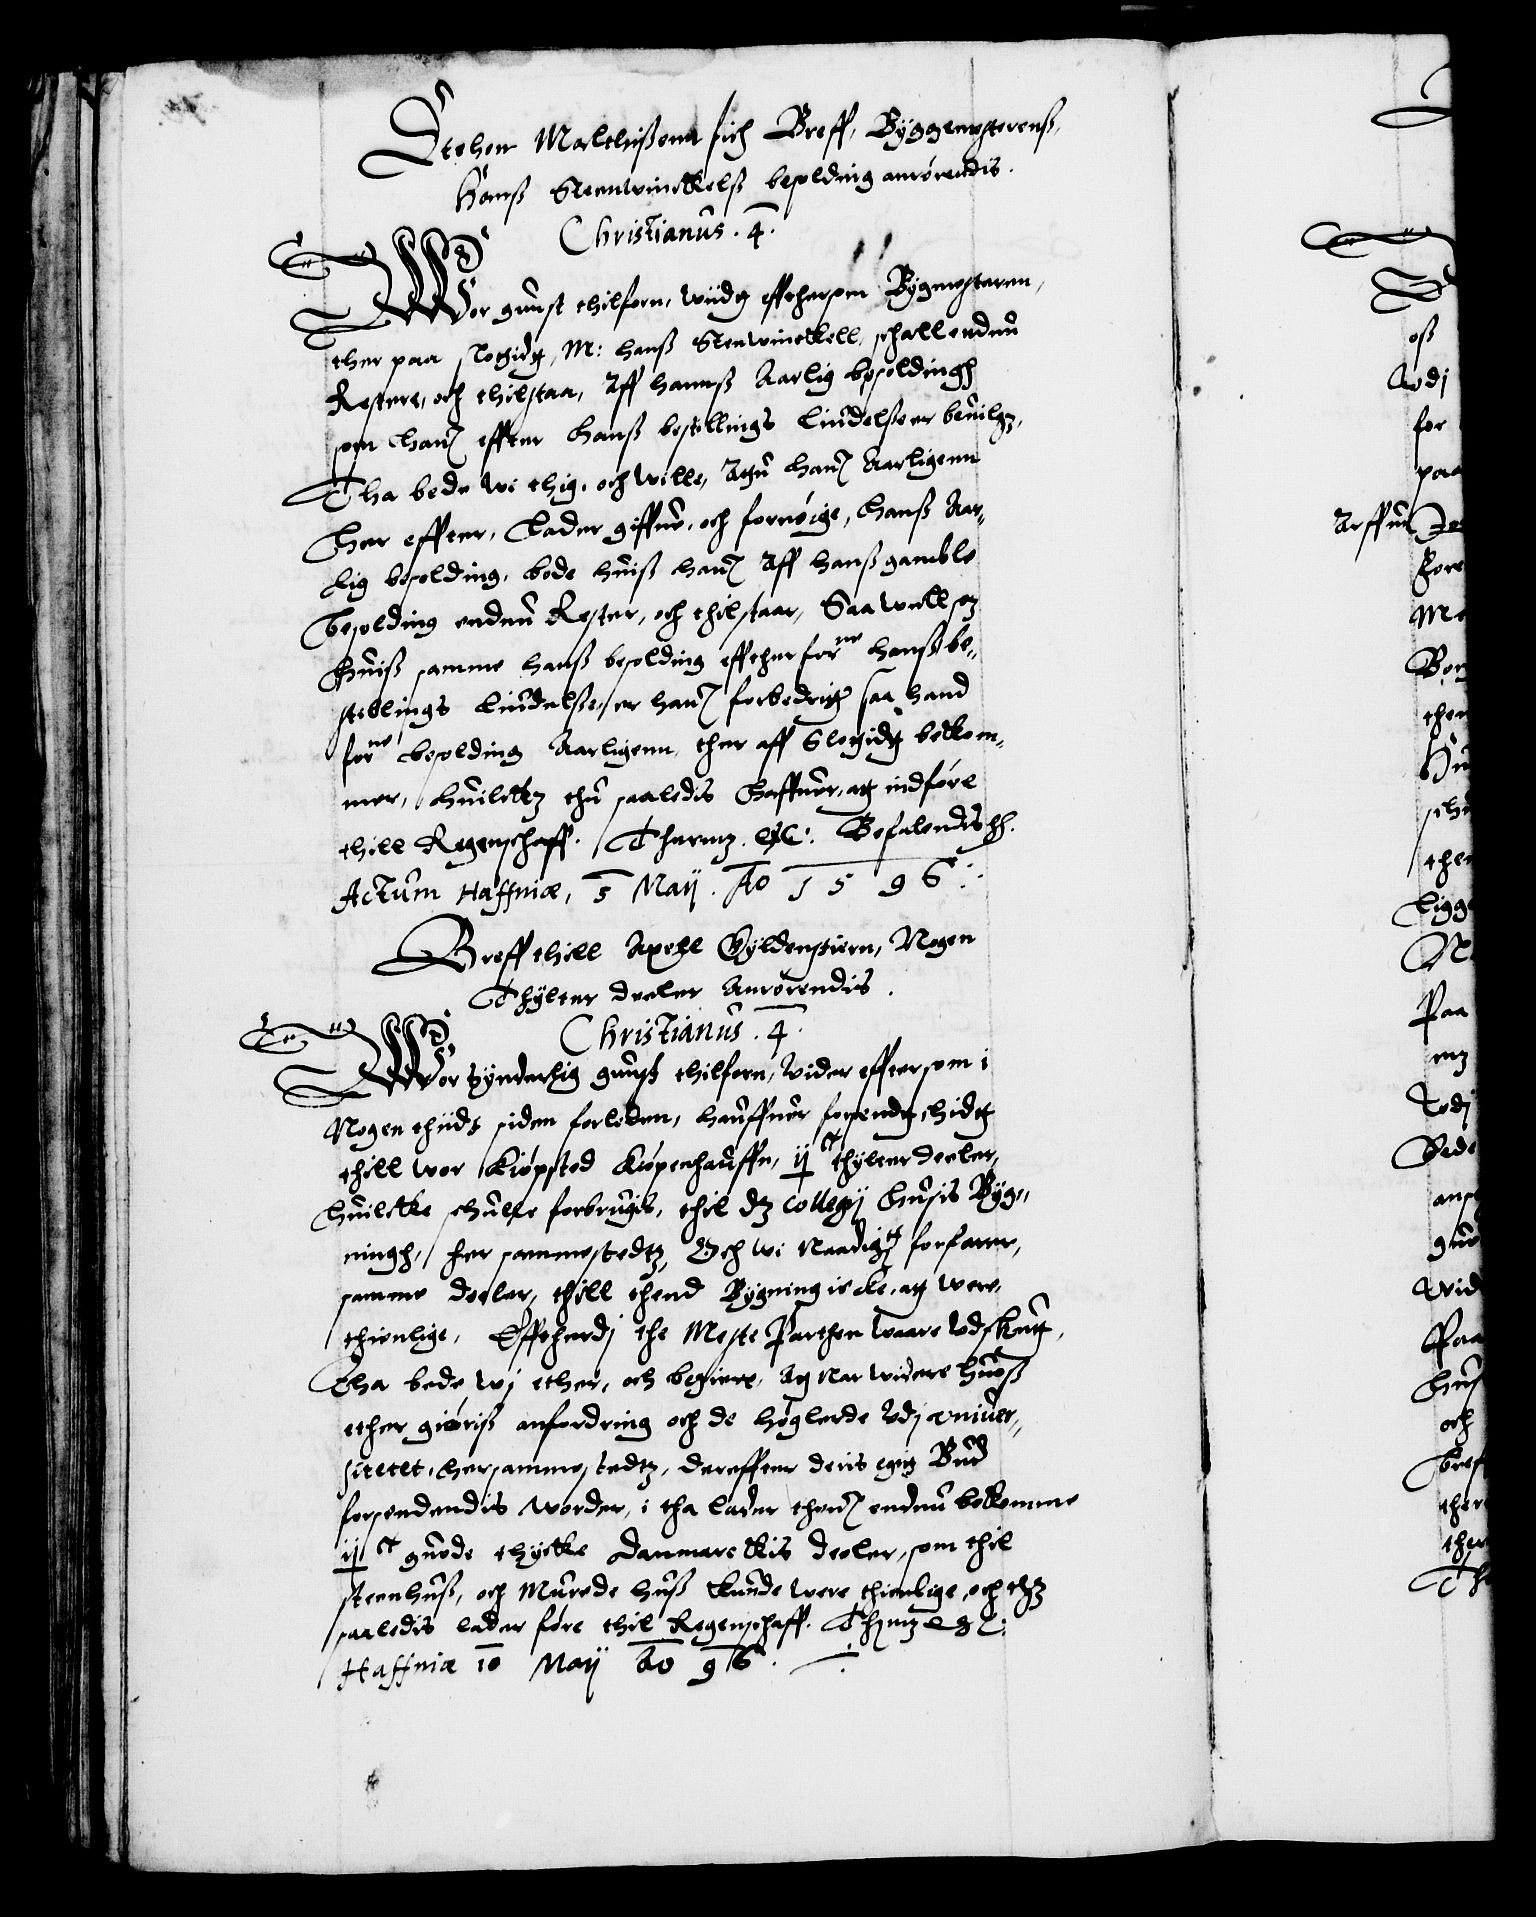 Stehen Malthißenn fich Breff, Byggemesterenß,
Hanß Steenwinckelß besolding anrørendis.
Christianus. 4.
Wor gunst thilforn, Wiidt effthersom Bygmesteren,
ther paa Slottidt, M: Hanß Stenwinckell, schall endnu
Restere, och thilstaa, Aff hannß Aarlig besoldingh
som hand effter Hanß bestillings liudelße er beuilget,
Tha bede wi thig, och wille, Attu hand Aarligenn
Her effter, lader giffue, och fornøige, Hanß Aar„
lig besolding, bode huiß hand Aff hanß gamble
besolding endnu Rester, och thilstaar, Saa well som
Huiß samme hanß besolding effther forne hanß be„
stellings liudelße, er hand forbedrit saa hand
forne besolding Aarligenn ther aff Slottidt bekom„
mer, huilcket thu saaledis haffuer, att indføre
thill Regenschaff. Thermet. &c: Befalendis hh.
Actum Haffniæ, 5 Maij. Ao 1596
Breff thill Axell Gyldenstiern, Nogen
Thylter deeler Anrørendis.
Christianus. 4.
Wor synderlig gunst thilforn, Vider effter som i
Nogen thiidt siden forleden, haffuer forsendt hidt
thill wor Kiøpsted Kiøpenhauffn, ij ct thylter deeler,
huilcke schulle forbrugis, thil det Collegij husis Byg„
ningh, her sammestedtz, Och wi Naadigst forfarer,
samme deeler, thill thend Bygning icke, att were
thienlige, Efftherdj the Meste Parthen waare Vdskutt,
Tha bede wj ether, och begiere, At Nar widere hooß
ether giøriß anfordring och de høglerde Vdj vniuer„
sitetet, hersammestedtz, dereffter deris egit Bud
forsendendis worder, i tha lader thend endnu bekomme
ij ct guode thycke Danmarckis deeler, som thil
steenhuß, och Murede huß kunde were thienlige, och thet
saaledis lader føre thil Regenschaff. Thermet &c:
Haffniæ 10 Maij Ao 96.